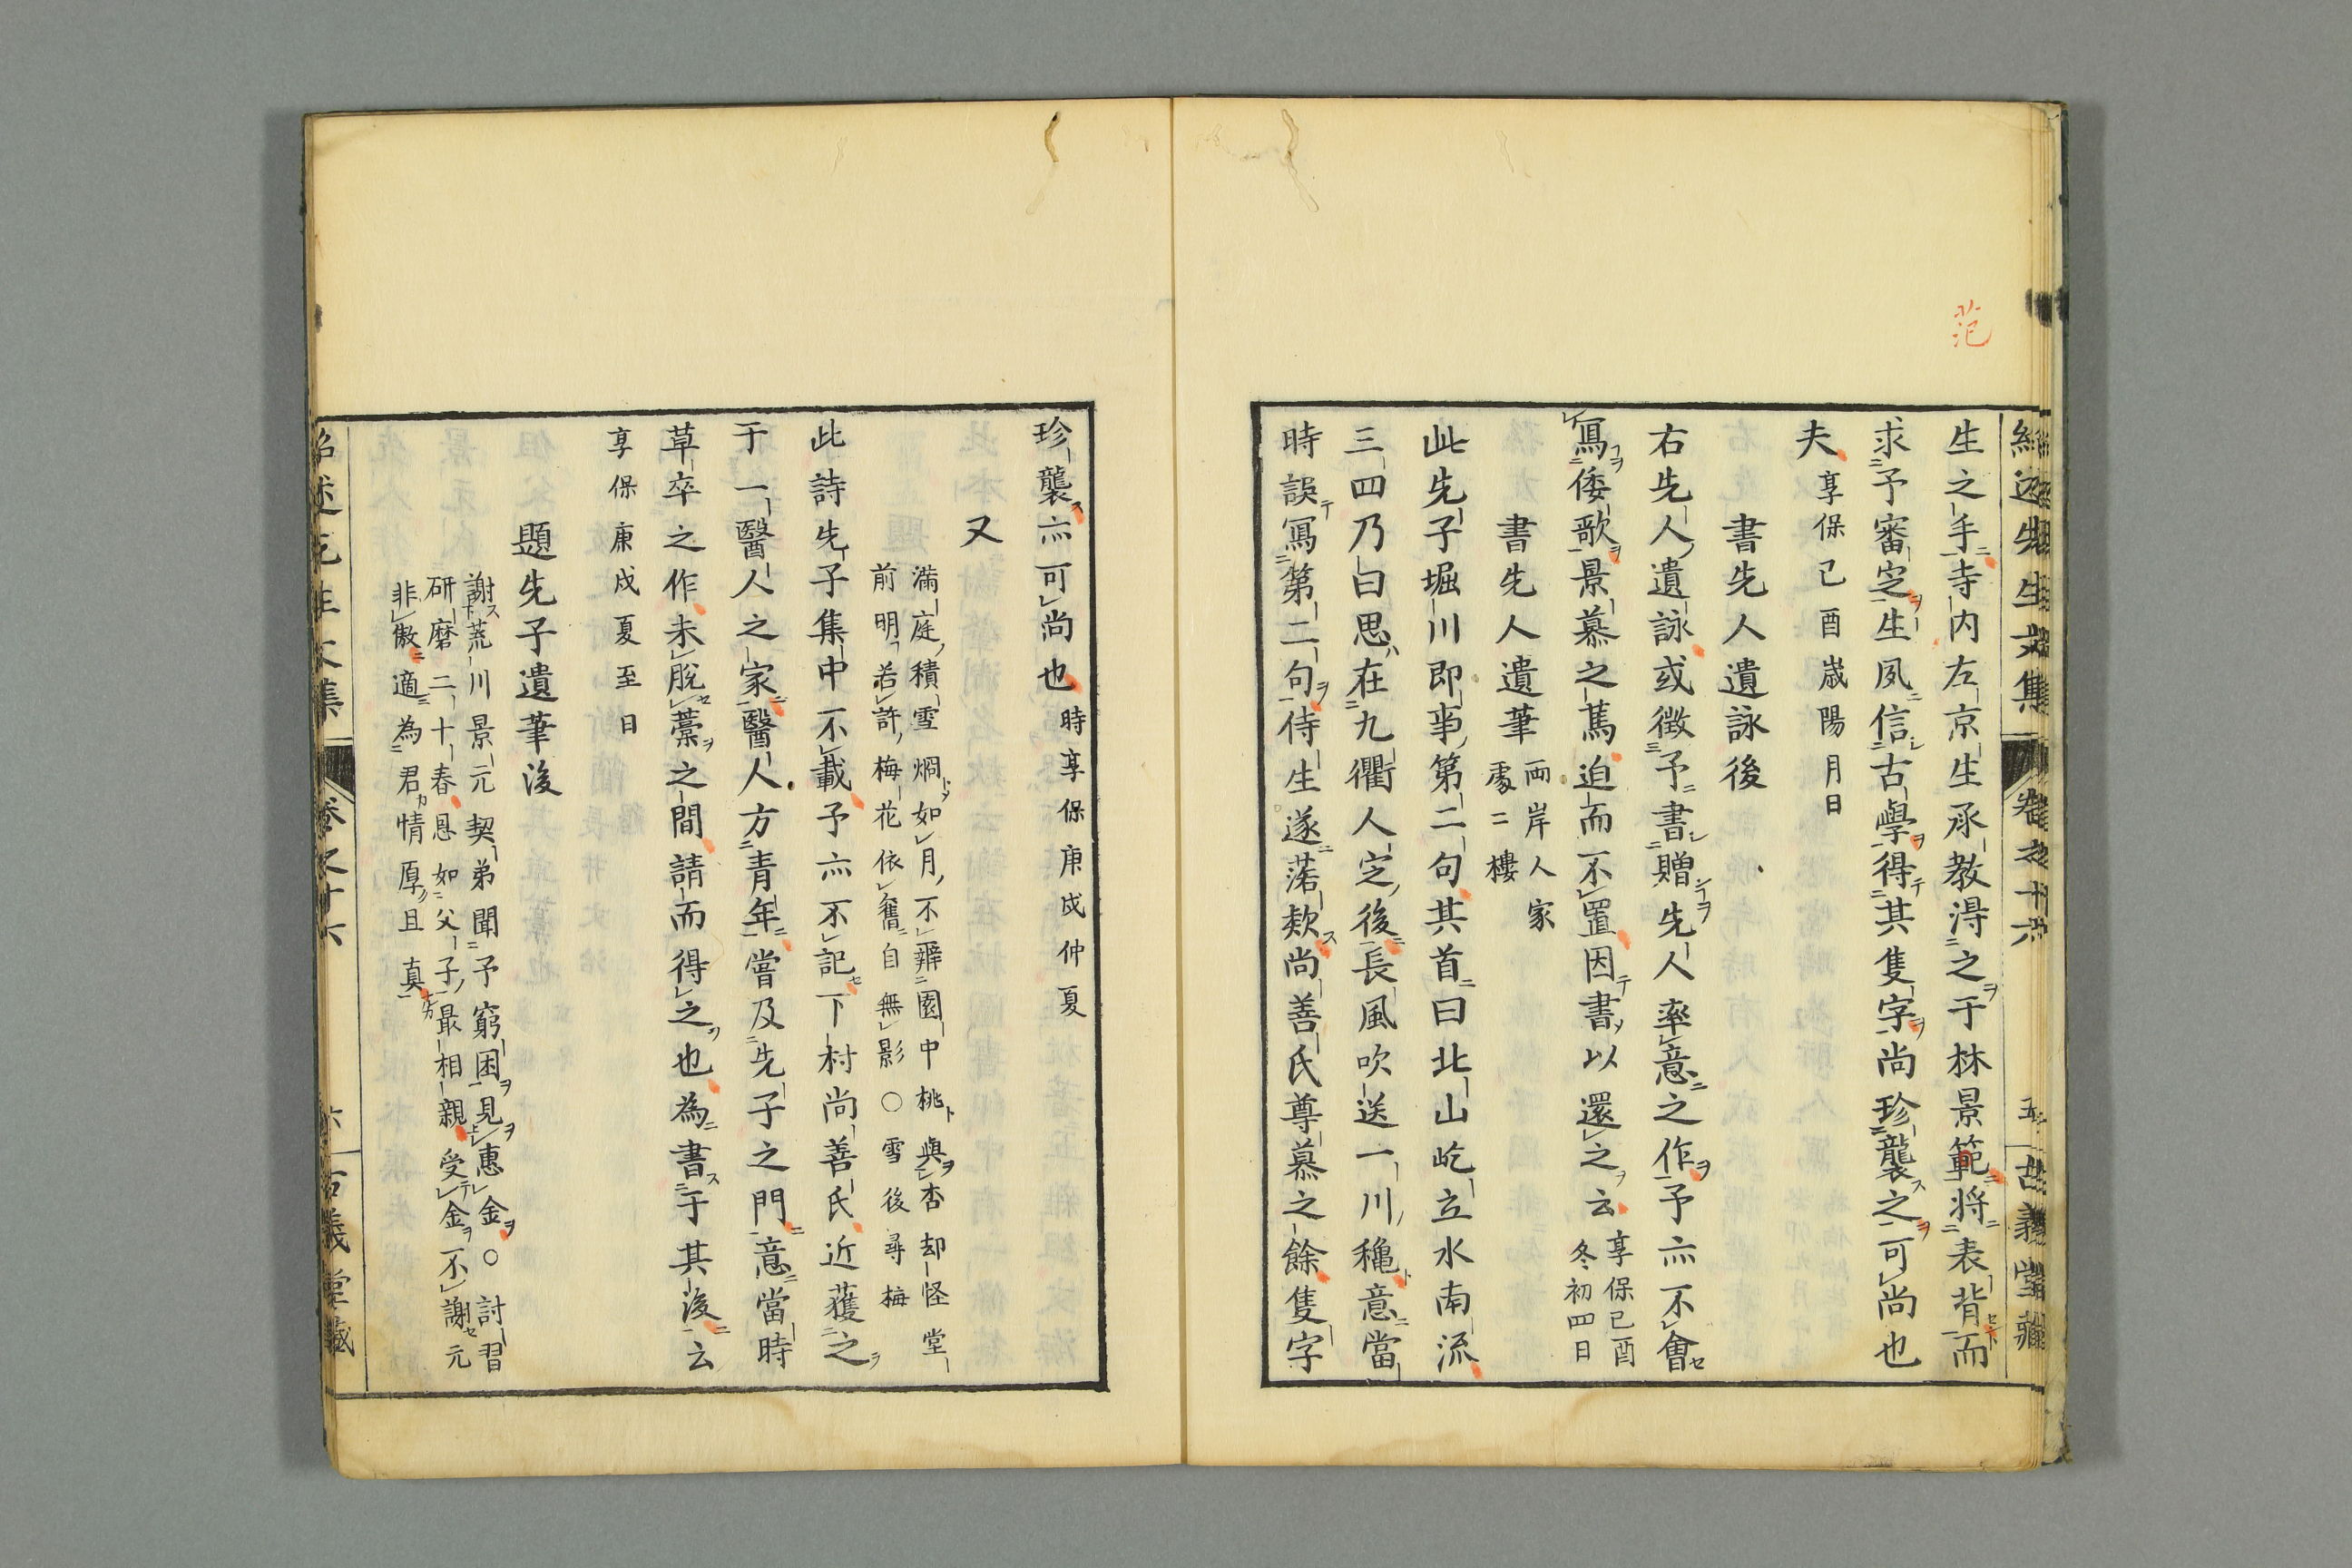 紹述先生文集 卷之十六 五 古義堂藏
范
生之手寺内左京生承教淂之于林景範将表背而
求予審定生夙信古學得其隻字尚珍襲之可尚也
夫 享保己酉歲陽月日
書先人遺詠後
右先人遺詠或徴予書贈先人率意之作予亦不會
寫倭歌景慕之篤迫而不置因書以還之云 享保己酉
冬初四日
書先人遺筆 兩岸人家
處二樓
此先子堀川即事第二句其首曰北山屹立水南流
三四乃曰思在九衢人定後長風吹送一川穐意當
時誤寫第二句侍生遂落欵尚善氏尊慕之餘隻字
珍襲亦可尚也 時享保庚戌仲夏
又 滿庭積雪烱如月不辨園中桃與杏却怪堂
前明若許梅花依舊自無影○雪後尋梅
此詩先子集中不載予亦不記下村尚善氏近獲之
于一醫人之家醫人方青年嘗及先子之門意當時
草卒之作未脫藁之間請而得之也為書于其後云
享保庚戌夏至日
題先子遺筆後
謝荒川景元契弟聞予窮困見惠金○討習
研磨二十春恩如父子最相親受金不謝元
非傲適為君情厚且真
紹述先生文集 卷之十六 六 古義堂藏